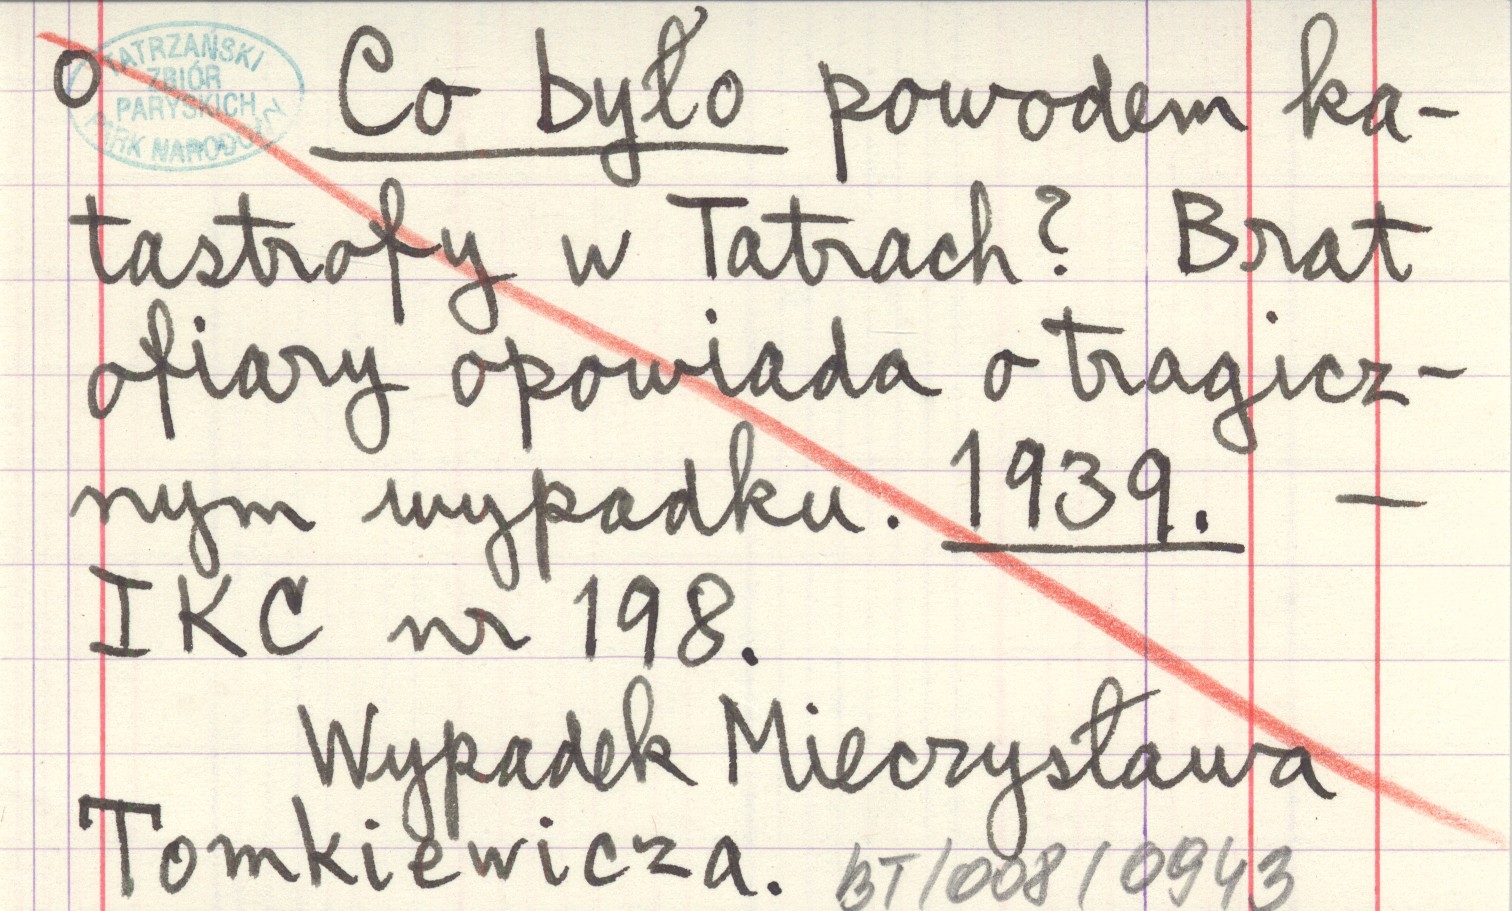 o
TATRZAŃSKI
ZBIÓR
PARYSKICH
PARK NARODOWY
Co było powodem ka-
tastrofy w Tatrach? Brat
ofiary opowiada o tragicz-
nym wypadku. 1939. —
IKC nr 198.
Wypadek Mieczysława
Tomkiewicza.
BT/008/0943